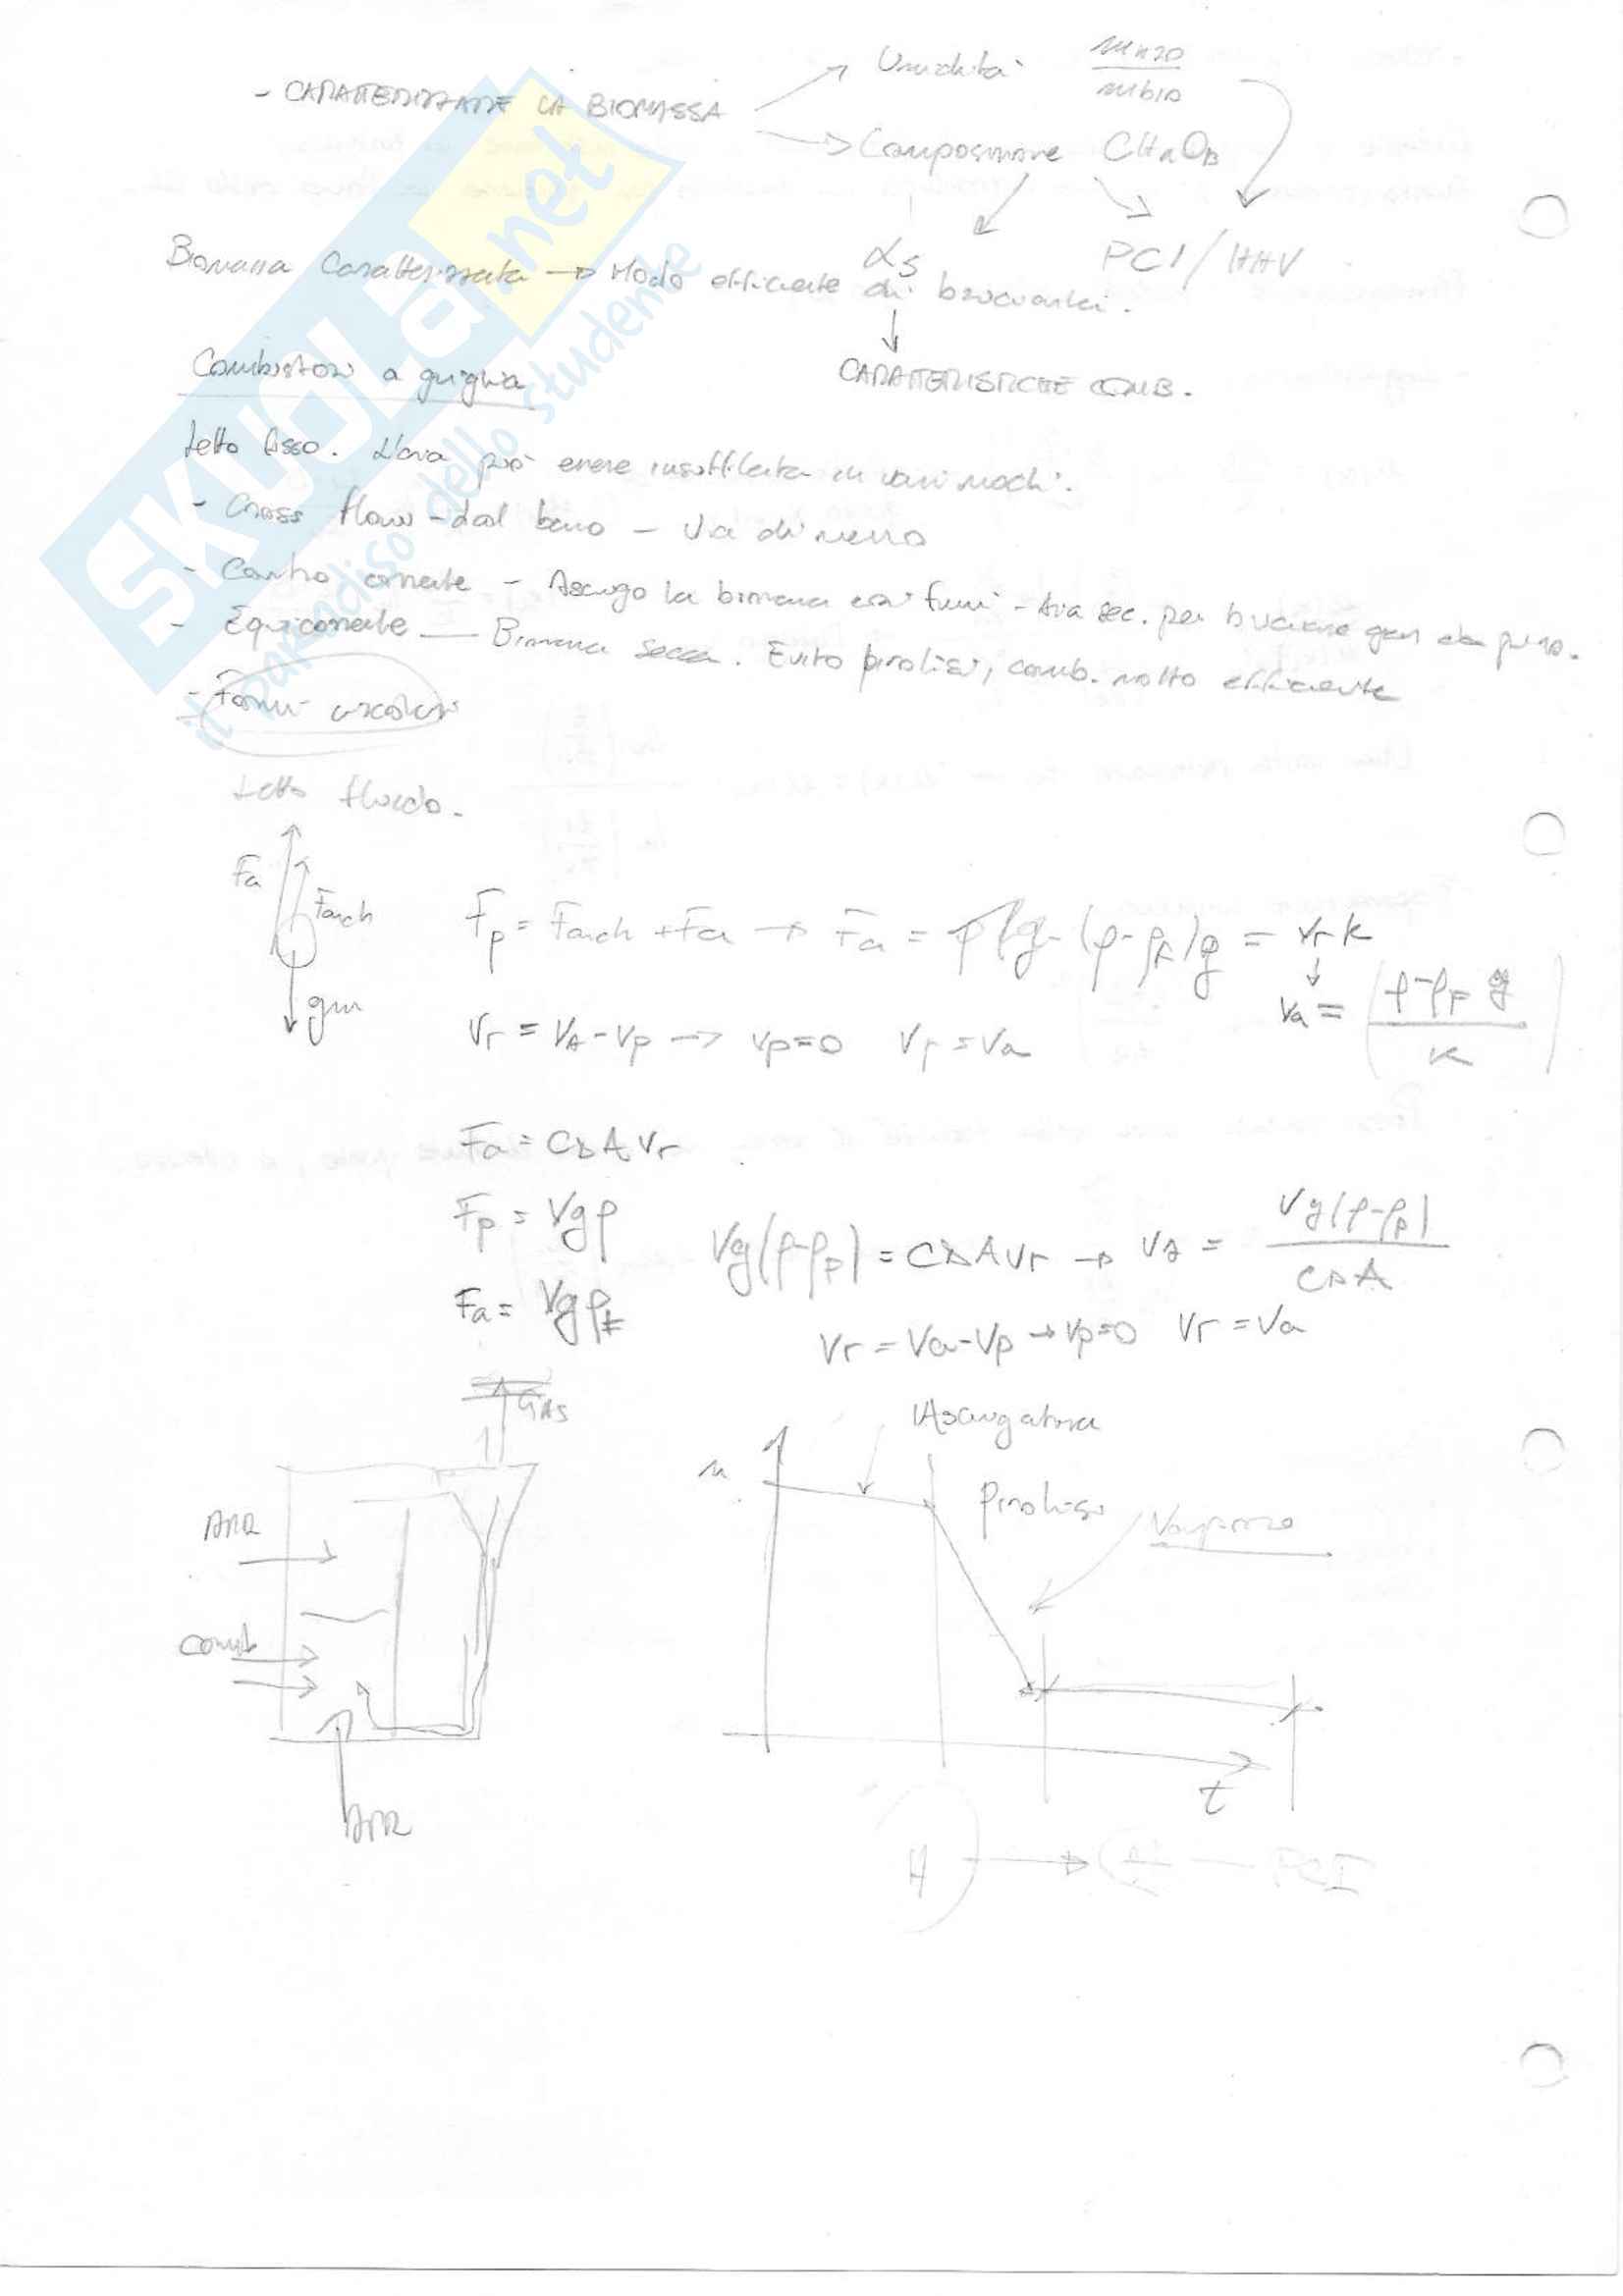 - CARATTERIZZARE LA BIOMASSA
Umidità mH2O / mbio
Composizione CHAOB
αs PCI / HHV
Biomassa Caratterizzata → Modo efficiente di bruciarla.
CARATTERISTICHE COMB.
Combustori a griglia
Letto fisso. L'aria può essere insufflata in vari modi.
- Cross flow - dal basso - Via di mezzo
- Contro corrente - Asciugo la biomassa con fumi - Aria sec. per bruciare gas da piro.
- Equicorrente — Biomassa secca. Evito pirolisi, comb. molto efficiente
- Forni
Letto fluido.
Fa
Farch
gm
Fp = Farch + Fa → Fa = ρg - (ρ-ρF)g = vr k
va = ρ-ρF g / k
Vr = VA - Vp → vp=0 Vr = Va
Fa = CD A Vr
Fp = Vgρ
Vg(ρ-ρF) = CD A Vr → VA = Vg(ρ-ρF) / CD A
Fa = VgρF
Vr = Va - Vp → vp=0 Vr = Va
GAS
Asciugatura
m
ARIA
Pirolisi
Comb
t
ARIA